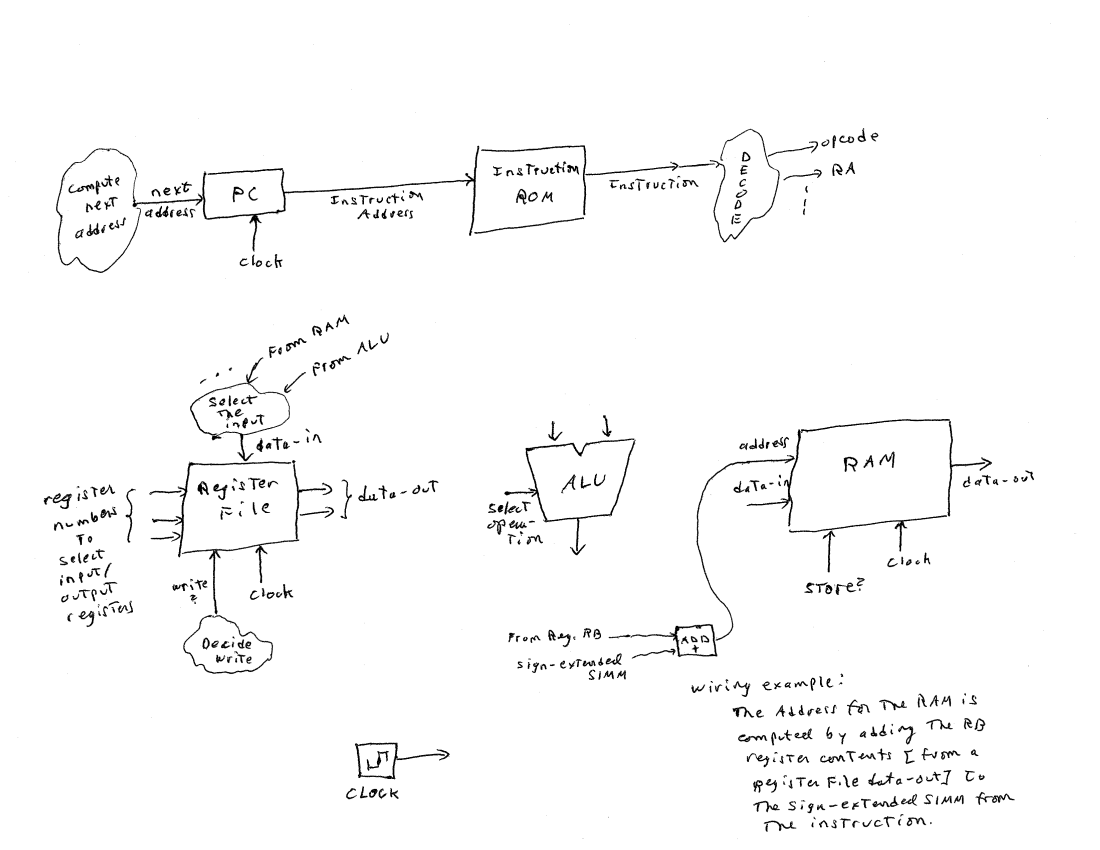 compute
next
address
next
address
PC
clock
Instruction
Address
Instruction
ROM
Instruction
DECODE
opcode
RA
From RAM
From ALU
...
Select
The
input
data-in
register
numbers
To
select
input/
output
registers
Register
File
data-out
write
?
clock
Decide
write
ALU
select
opera-
tion
address
data-in
RAM
data-out
store?
clock
From Reg. RB
sign-extended
SIMM
ADD
+
wiring example:
The Address for The RAM is
computed by adding The RB
register contents [from a
Register File data-out] to
The sign-extended SIMM from
The instruction.
CLOCK